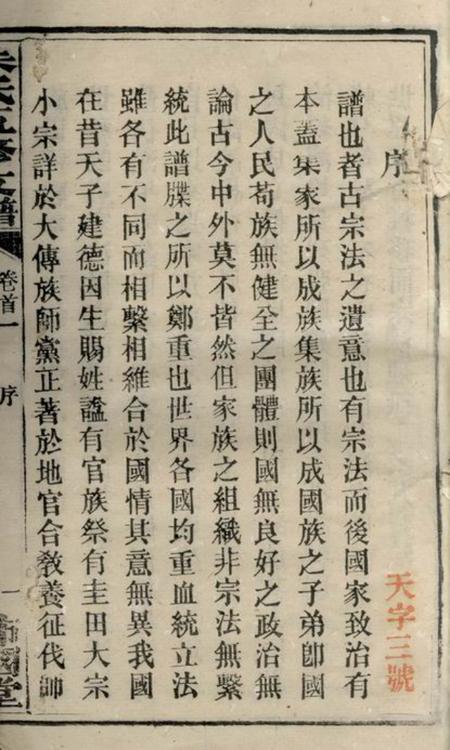 序
天字三號
譜也者古宗法之遺意也有宗法而後國家致治有
本蓋集家所以成族集族所以成國族之子弟卽國
之人民苟族無健全之團體則國無良好之政治無
論古今中外莫不皆然但家族之組織非宗法無繫
統此譜牒之所以鄭重也世界各國均重血統立法
雖各有不同而相繫相維合於國情其意無異我國
在昔天子建德因生賜姓諡有官族祭有圭田大宗
小宗詳於大傳族師黨正著於地官合敎養征伐帥
五修支譜
卷首一
序
一